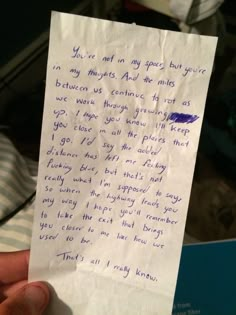 You're not in my space, but you're
in my thoughts. And the miles
between us continue to rot as
we work through growing
up. I hope you know I'll keep
you close in all the places that
I go. I'd say the
distance has left me fucking
fucking blue, but that's not
really what I'm supposed to say
so when the highway leads you
my way I hope you'll remember
to take the exit that brings
you closer to me like how we
used to be.
That's all I really know.